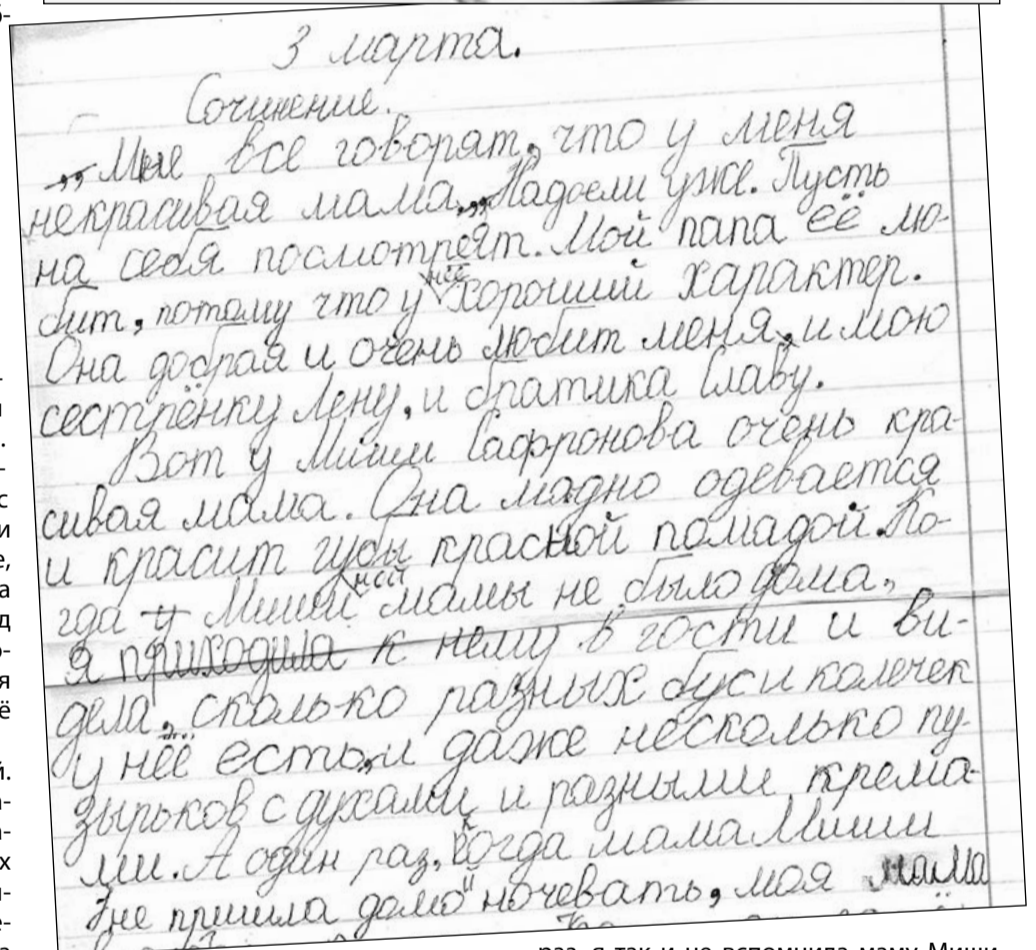 3 марта.
Сочинение.
„Мне все говорят, что у меня
некрасивая мама.„ Надоели уже. Пусть
на себя посмотрят. Мой папа её лю-
бит, потому что у неё хороший характер.
Она добрая и очень любит меня, и мою
сестрёнку Лену, и братика Славу.
Вот у Миши Сафронова очень кра-
сивая мама. Она мадно одевается
и красит губы красной помадой. Ко-
гда у Мишиной мамы не было дома,
я приходила к нему в гости и ви-
дела, сколько разных бус и колечек
у неё есть, и даже несколько пу-
зырьков с духами и разными крема-
ми. А один раз, когда мама Миши
не пришла домой ночевать, моя мама
раз, я так и не вспомнила маму Миши